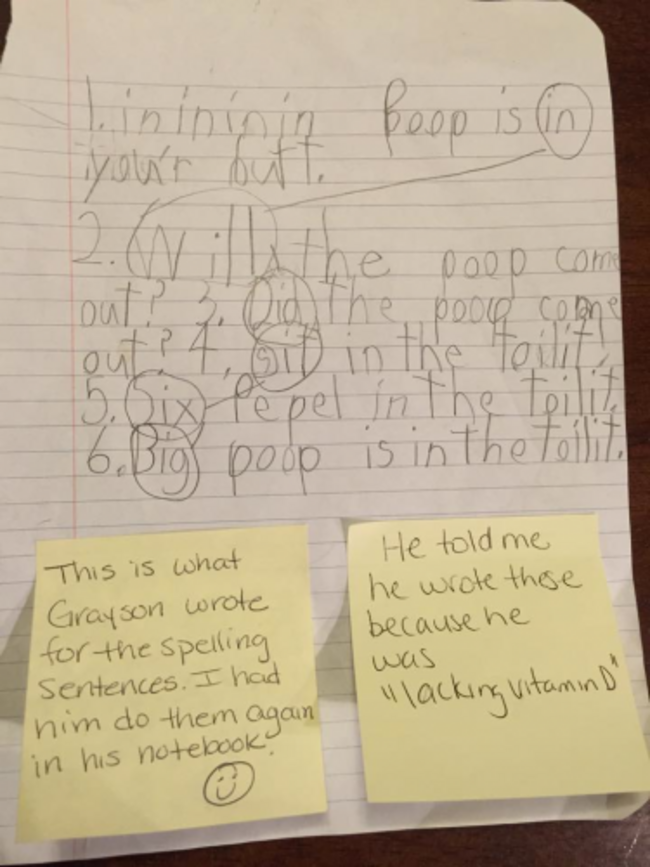 1. in in in in in Poop is in
your'r butt.
2. Will the poop come
out? 3. Did the poop come
out? 4. sit in the toilit.
5. Six Pepel in the toilit.
6. Big poop is in the toilit.
This is what
Grayson wrote
for the spelling
sentences. I had
him do them again
in his notebook.
He told me
he wrote these
because he
was
"lacking vitamin D"